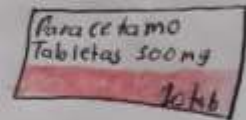 Paracetamo
Tabletas
10 tab